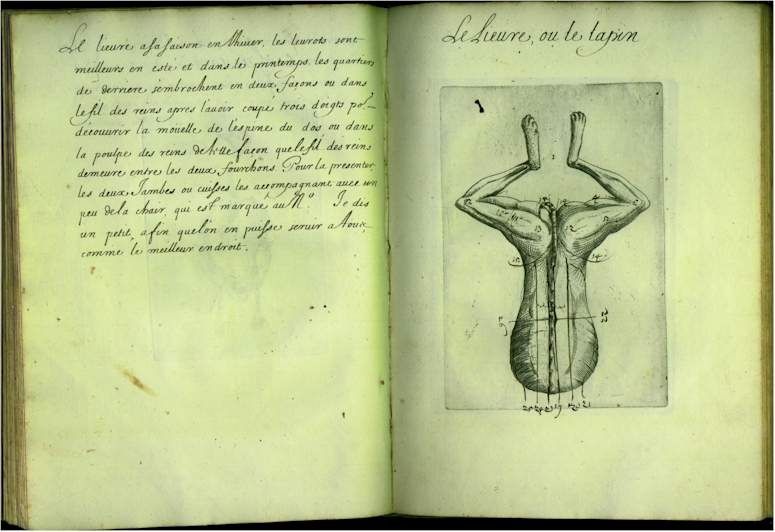 Le lieure a sa saison en lhiuer, les leurots sont
meilleurs en esté et dans le printemps. les quartiers
de derriere sembrochent en deux façons ou dans
le fil des reins apres l'auoir coupé trois doigts po.r
découurir la mouelle de l'espine du dos ou dans
la poulpe des reins de façon que le fil des reins
demeure entre les deux fourchons. Pour la presenter
les deux Jambes ou cuisses les accompagnant auec un
peu de la chair, qui est marqué au N.o Je dis
un petit, afin quelon en puisse seruir a Tous,
comme le meilleur endroit.
Le Lieure, ou le lapin